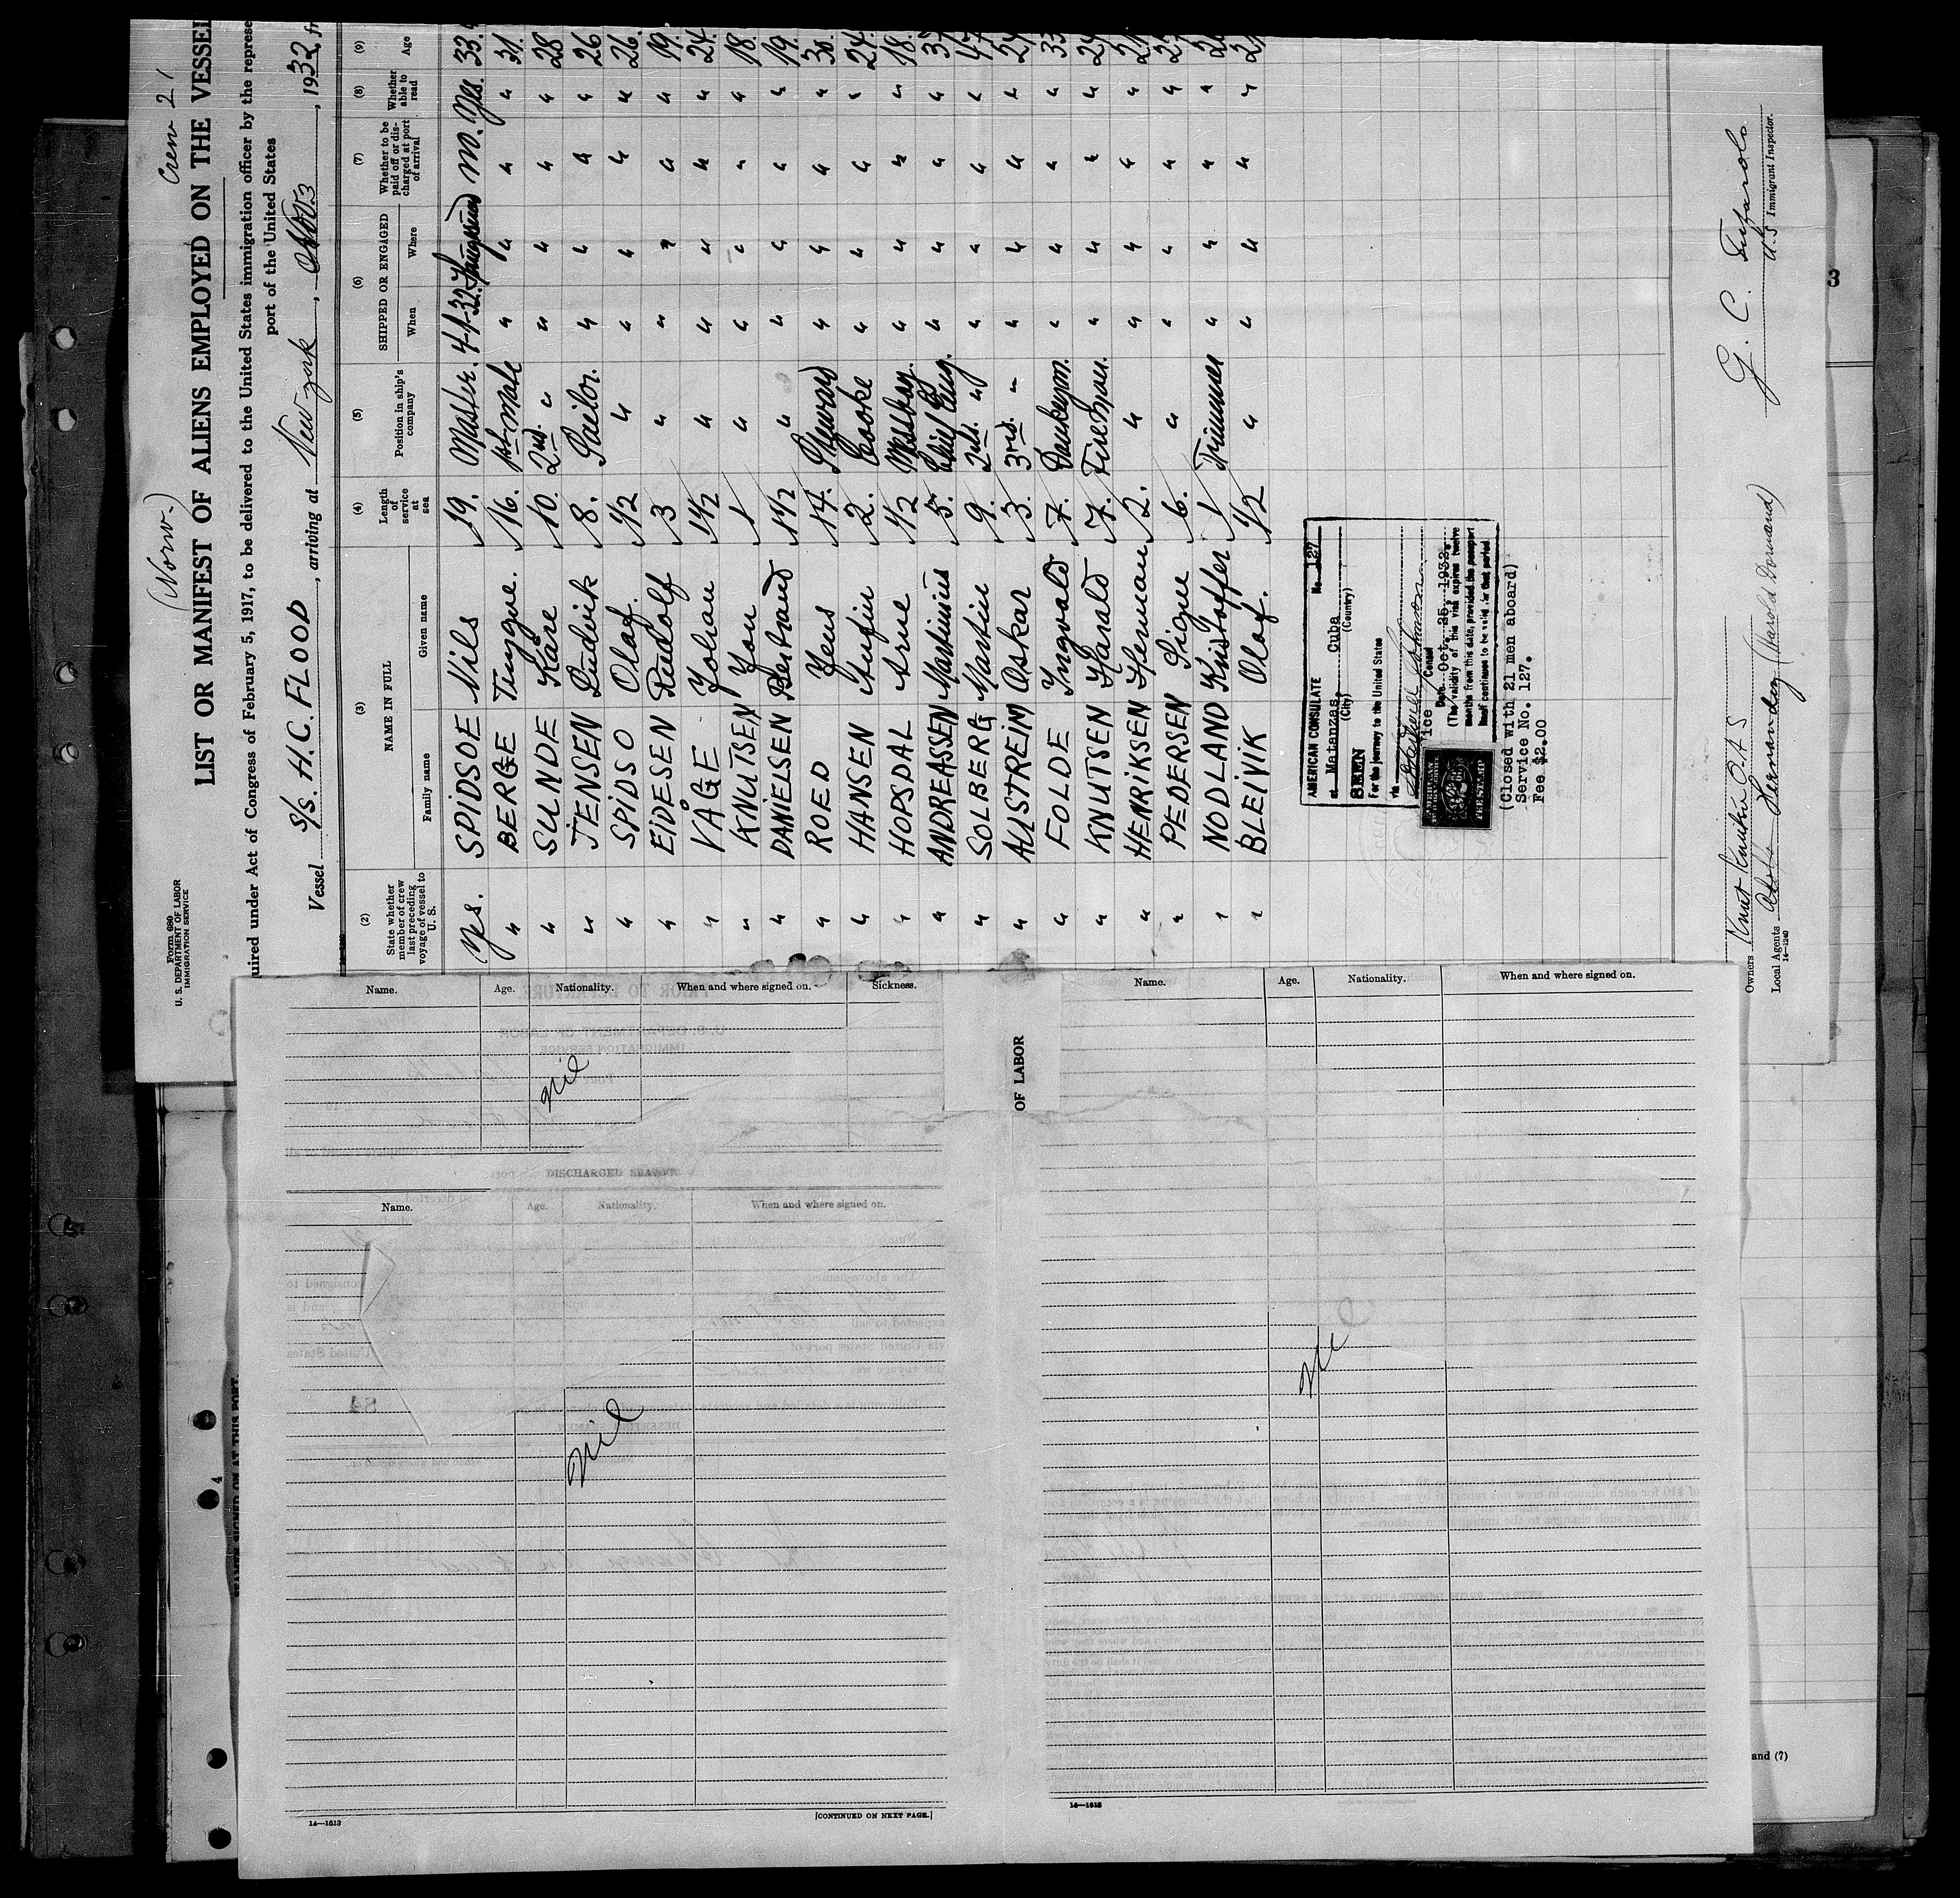 (Norw.) Crew 21
Form 680
U. S. DEPARTMENT OF LABOR
IMMIGRATION SERVICE
LIST OR MANIFEST OF ALIENS EMPLOYED ON THE VESSEL
quired under Act of Congress of February 5, 1917, to be delivered to the United States immigration officer by the represe
port of the United States
Vessel S/S. H.C. FLOOD, arriving at New york, 1932, fr
(2) (3) (4) (5) (6) (7) (8) (9)
State whether member of crew last preceding voyage of vessel to U. S.
NAME IN FULL
Family name Given name
Length of service at sea
Position in ship's company
SHIPPED OR ENGAGED
When Where
Whether to be paid off or discharged at port of arrival
Whether able to read
Age
yes. SPIDSOE Nils 19. Master. 4-1-32. no. yes. 33.
" BERGE Tryggve. 16. 1st Mate " " " " 31.
" SUNDE Kåre 10. 2nd. " " " " " 28
" JENSEN Ludvik 8. Sailor. " " " " 26
" SPIDSO Olaf. 1/2 " " " " " 26.
" EIDESEN Rudolf 3 " " " " " 19.
" VÅGE Johan 1 1/2 " " " " " 24.
" KNUTSEN Jon 1 " " " " " 18.
" DANIELSEN Bertrand 1 1/2 " " " " " 19.
" ROED Jens 14. Steward " " " " 30.
" HANSEN 2. Cooke " " " " 24.
" HOPSDAL Arne 1/2 Messboy. " " " " 18.
" ANDREASSEN Martinius 5. Chief Eng. " " " " 37
" SOLBERG Martin 9. 2nd. " " " " " 47
" AUSTREIM Oskar 3. 3rd. " " " " " 24
" FOLDE Ingvald 7. Donkeym. " " " " 33
" KNUTSEN Harald 7. Fireman. " " " " 24
" HENRIKSEN Herman 2. " " " " "
" PEDERSEN Signe 6. " " " " "
" NODLAND Kristoffer 1 Trimmer " " " "
" BLEIVIK Olaf. 1/2 " " " " "
AMERICAN CONSULATE No. 127
at Matanzas Cuba
(City) (Country)
SEEN
For the journey to the United States
via
Vice Consul
Date Oct. 25, 1932.
(The validity of this visa expires twelve
months from this date, provided the passport
itself continues to be valid for that period
(Closed with 21 men aboard)
Service No. 127.
Fee $2.00
Owners Knut Knutsen O.A.S
Local Agents Hernandez (Harold Dormand)
14-1240
G. C. Tufarolo
U.S Immigrant Inspector.
3
Name. Age. Nationality. When and where signed on. Sickness.
nil
DISCHARGED SEAMEN
Name. Age. Nationality. When and where signed on.
nil
14—1613
[CONTINUED ON NEXT PAGE.]
OF LABOR
Name. Age. Nationality. When and where signed on.
nil
14—1613
4
SEAMEN SIGNED ON AT THIS PORT.
and (7)